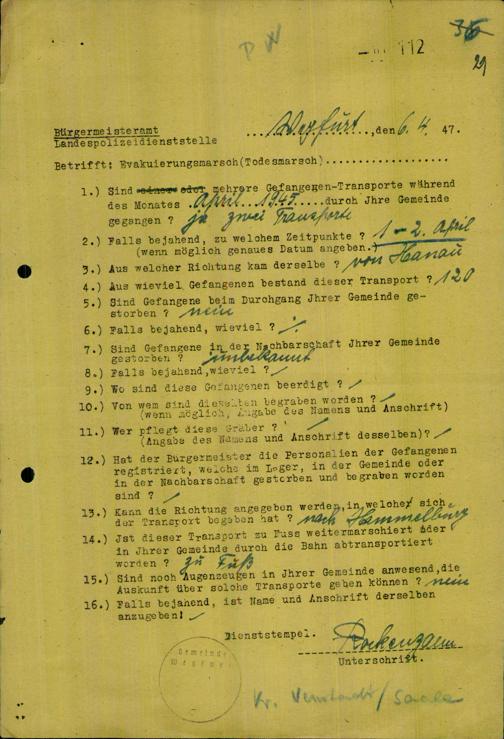 P W
112
36
29
Bürgermeisteramt
Landespolizeidienststelle
...Wegfurt..,den 6.4. 47.
Betrifft: Evakuierungsmarsch(Todesmarsch)..................
1.) Sind einer oder mehrere Gefangenen-Transporte während
des Monates .April 1945.....durch Jhre Gemeinde
gegangen ? ja zwei Transporte
2.) Falls bejahend, zu welchem Zeitpunkte ? 1 - 2. April
(wenn möglich genaues Datum angeben.)
3.) Aus welcher Richtung kam derselbe ? von Hanau
4.) Aus wieviel Gefangenen bestand dieser Transport ? 120
5.) Sind Gefangene beim Durchgang Jhrer Gemeinde ge-
storben ? nein
6.) Falls bejahend, wieviel ? /
7.) Sind Gefangene in der Nachbarschaft Jhrer Gemeinde
gestorben ? unbekannt
8.) Falls bejahend,wieviel ? /
9.) Wo sind diese Gefangenen beerdigt ? /
10.) Von wem sind dieselben begraben worden ? /
(wenn möglich, Angabe des Namens und Anschrift)
11.) Wer pflegt diese Gräber ? /
(Angabe des Namens und Anschrift desselben)? /
12.) Hat der Bürgermeister die Personalien der Gefangenen
registriert, welche im Lager, in der Gemeinde oder
in der Nachbarschaft gestorben und begraben worden
sind ? /
13.) Kann die Richtung angegeben werden,in welcher sich
der Transport begeben hat ? nach Hammelburg
14.) Jst dieser Transport zu Fuss weitermarschiert oder
in Jhrer Gemeinde durch die Bahn abtransportiert
worden ? zu Fuß
15.) Sind noch Augenzeugen in Jhrer Gemeinde anwesend,die
Auskunft über solche Transporte geben können ? nein
16.) Falls bejahend, ist Name und Anschrift derselben
anzugeben! /
Dienststempel.
Gemeinde
Unterschrift.
Kr. Neustadt/Saale